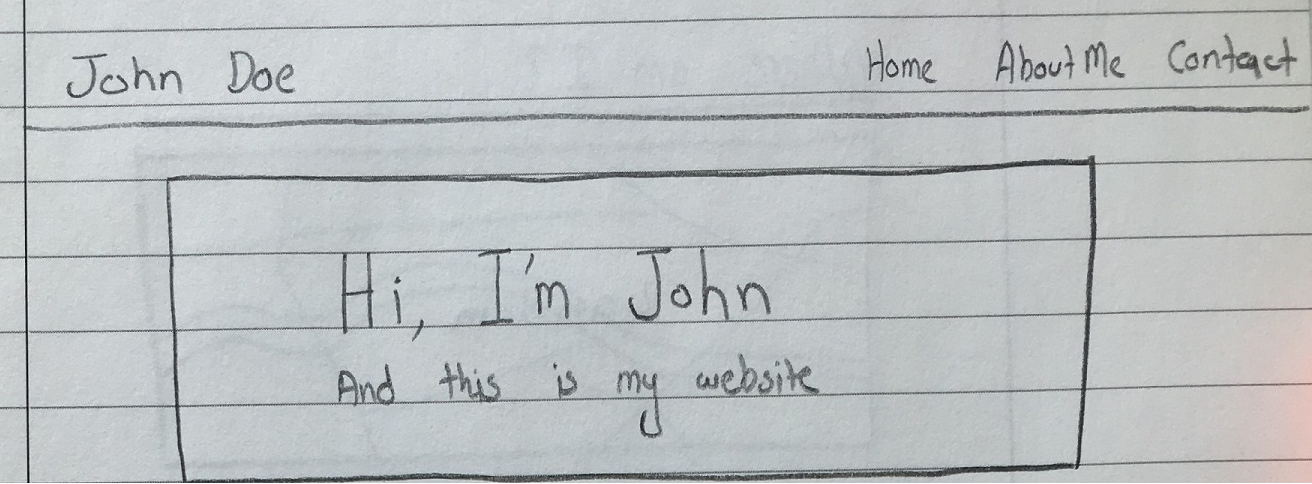 John Doe Home About Me Contact
Hi, I'm John
And this is my website